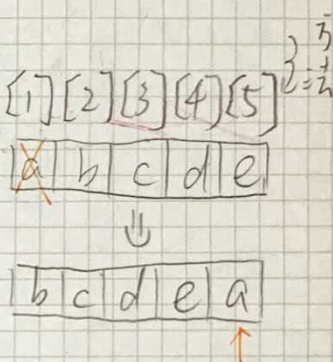 [1] [2] [3] [4] [5]
a b c d e
⇓
b c d e a
↑